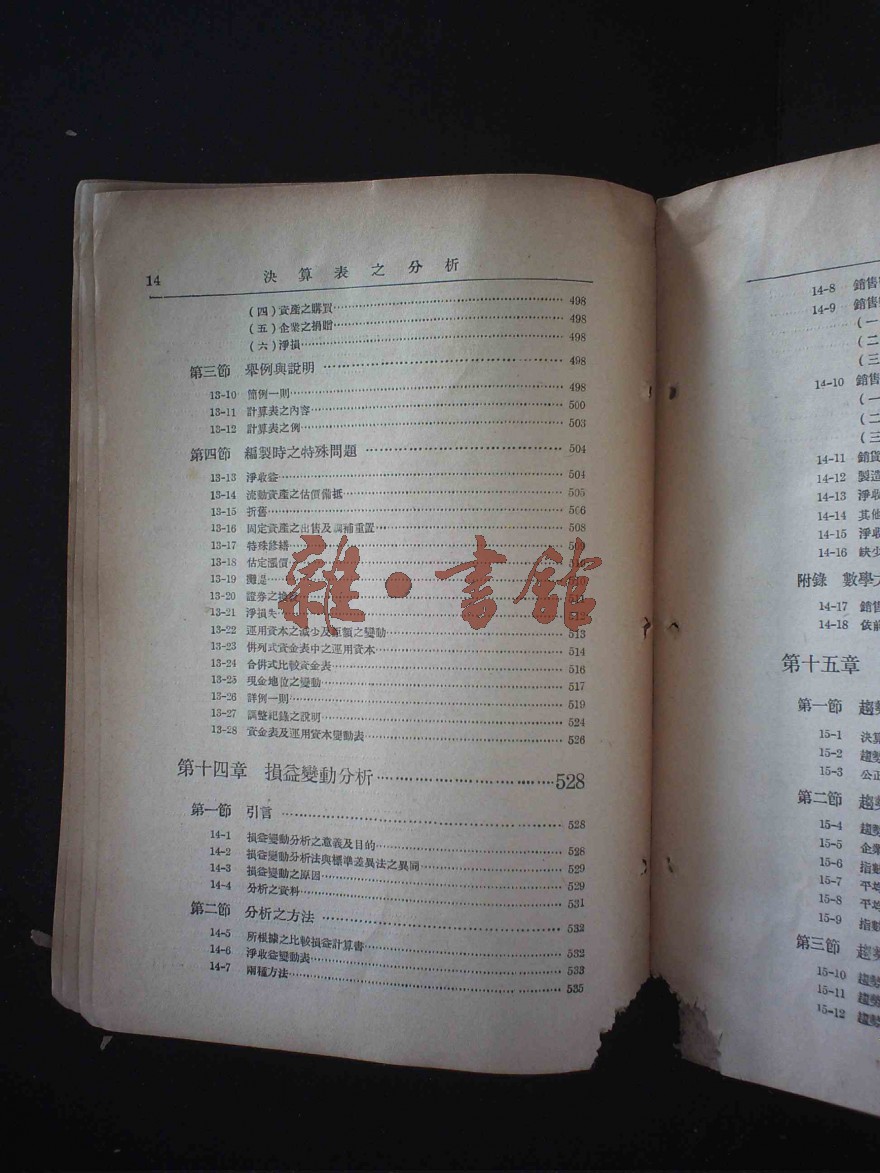 14 決算表之分析
(四)資產之購買 498
(五)企業之捐贈 498
(六)淨損 498
第三節 舉例與說明 498
13-10 簡例一則 498
13-11 計算表之內容 500
13-12 計算表之例 503
第四節 編製時之特殊問題 504
13-13 淨收益 504
13-14 流動資產之估價備抵 505
13-15 折舊 506
13-16 固定資產之出售及調補重置 508
13-17 特殊修繕
13-18 估定漲價
13-19 攤提
13-20 證券之
13-21 淨損失 512
13-22 運用資本之減少及鉅額之變動 513
13-23 併列式資金表中之運用資本 514
13-24 合併式比較資金表 516
13-25 現金地位之變動 517
13-26 詳例一則 519
13-27 調整記錄之說明 524
13-28 資金表及運用資本變動表 526
第十四章 損益變動分析 528
第一節 引言 528
14-1 損益變動分析之意義及目的 528
14-2 損益變動分析法與標準差異法之異同 529
14-3 損益變動之原因 529
14-4 分析之資料 531
第二節 分析之方法 532
14-5 所根據之比較損益計算書 532
14-6 淨收益變動表 533
14-7 兩種方法 535
雜·書館
14-8 銷售
14-9 銷售
(一
(二
(三
14-10 銷售
(一
(二
(三
14-11 銷貨
14-12 製造
14-13 淨收
14-14 其他
14-15 淨收
14-16 缺少
附錄 數學
14-17 銷售
14-18 依前
第十五章
第一節 趨勢
15-1 決算
15-2 趨勢
15-3 公正
第二節 趨勢
15-4 趨勢
15-5 企業
15-6 指數
15-7 平均
15-8 平均
15-9 指數
第三節 趨勢
15-10 趨勢
15-11 趨勢
15-12 趨勢